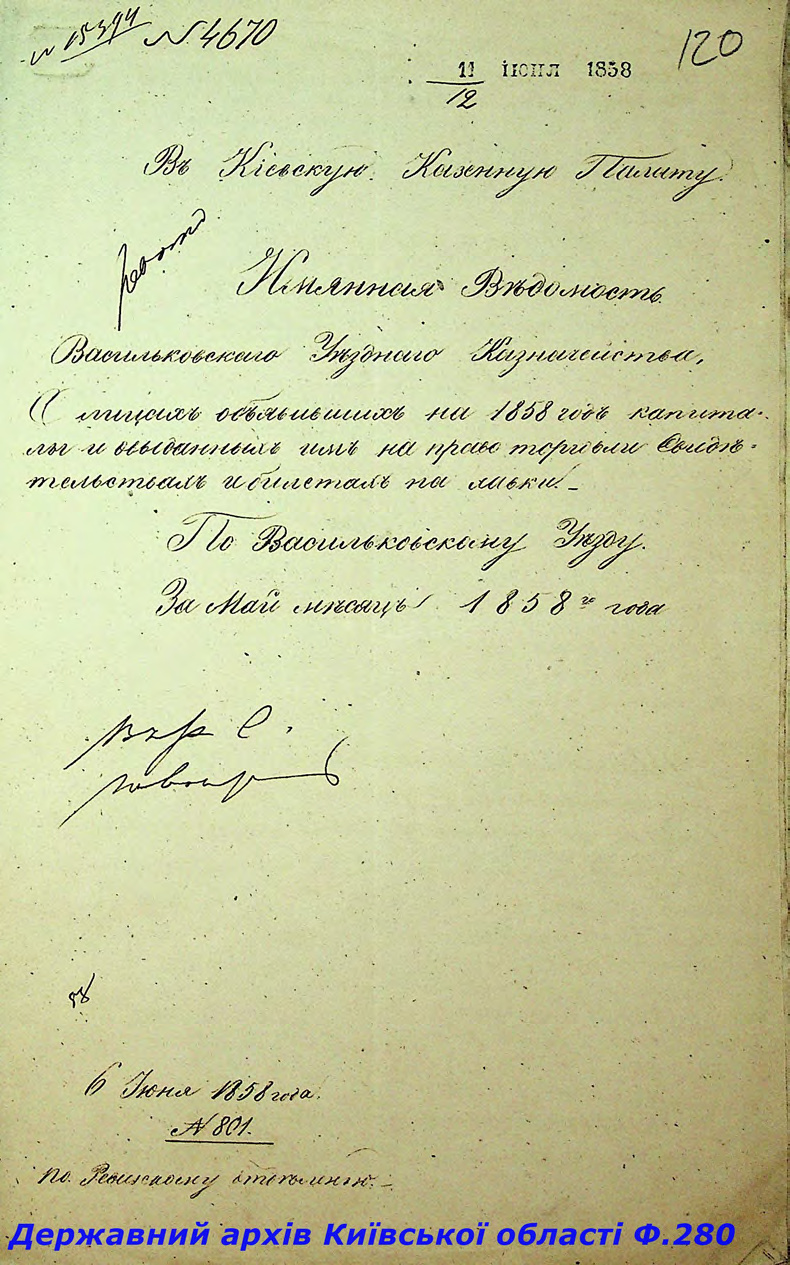 N 15394 N 4670
11 ІЮНЯ 1858 120
12
Въ Кіевскую Казенную Палату.
Имянная Вѣдомость
Васильковскаго Уѣзднаго Казначейства,
О лицахъ объявившихъ на 1858 годъ капита-
лы и овыданныхъ имъ на право торговли Свидѣ-
тельствахъ и билетахъ на лавки. -
По Васильковскому Уѣзду.
За Май мѣсяцъ 1858го года
6 Іюня 1858 года.
N 801.
По Ревизскому отдѣленію. -
Державний архів Київської області Ф.280